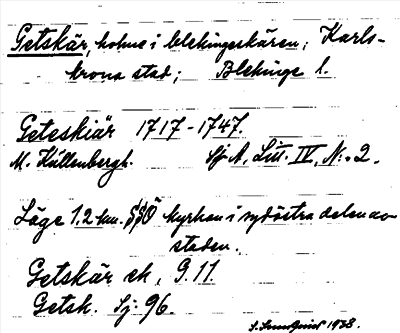 Getskär, holme i blekingeskären; Karls-
krona stad; Blekinge l.
Geteskiär 1717-1747.
M. Küllenbergh. Sj. A, Litt. IV, N:o 2.
Läge 1.2 km. SSÖ kyrkan i sydöstra delen av
staden.
Getskär ek. G. 11.
Getsk. Sj. 96.
1938.